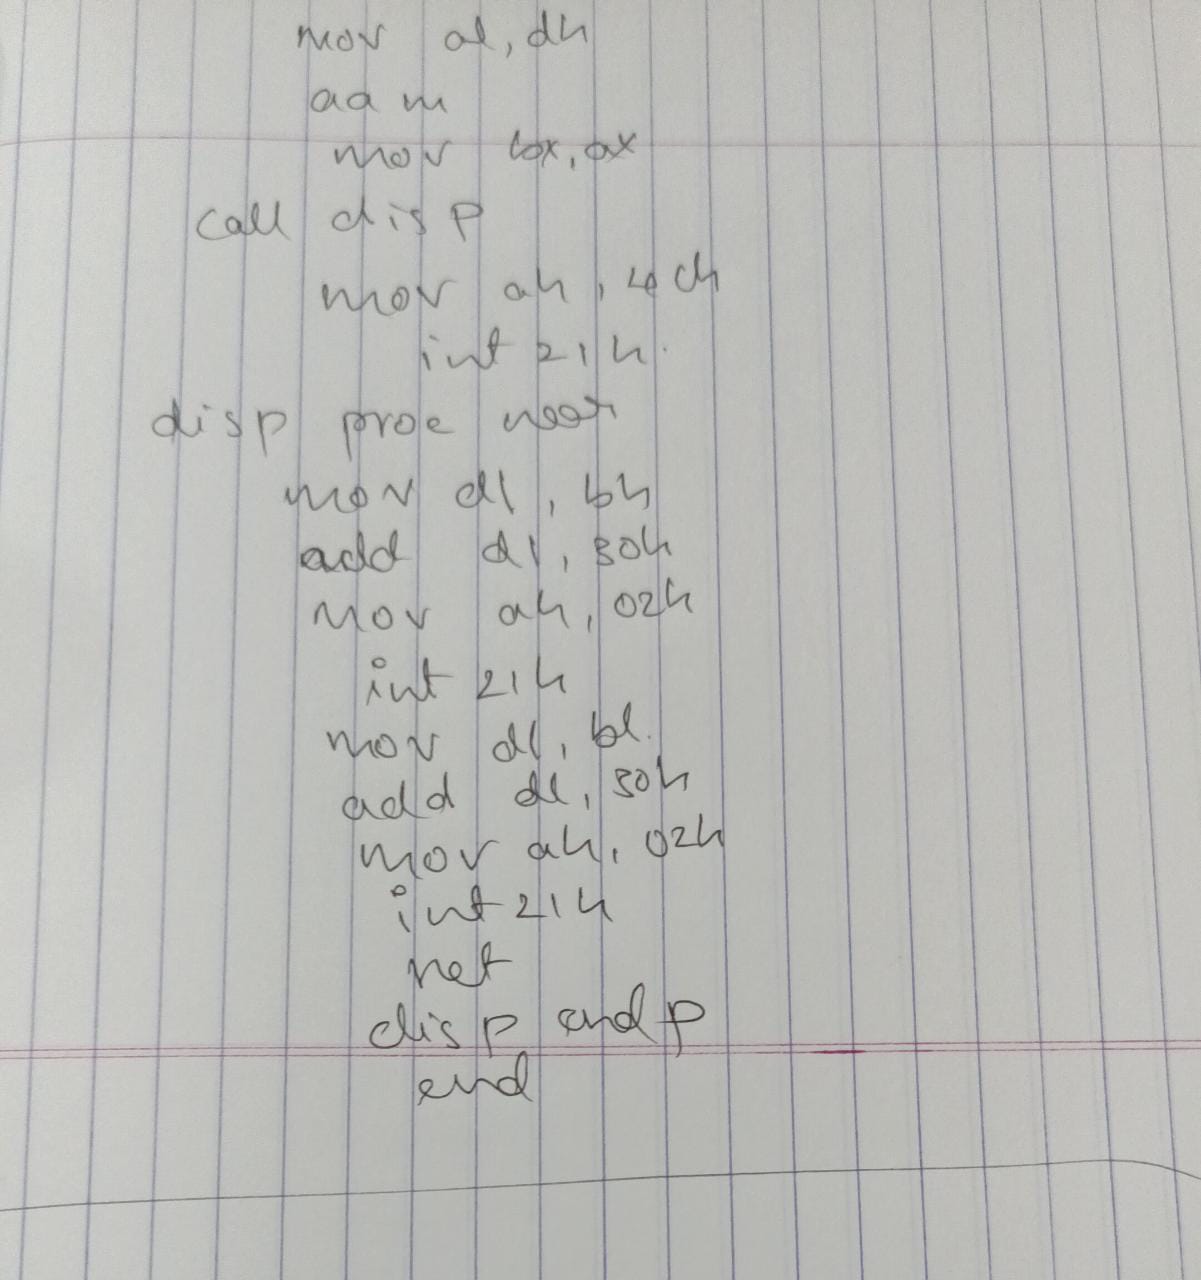 mov al, dh
aam
mov bx, ax
call disp
mov ah, 4ch
int 21h.
disp proc near
mov dl, bh
add dl, 30h
mov ah, 02h
int 21h
mov dl, bl.
add dl, 30h
mov ah, 02h
int 21h
ret
disp endp
end